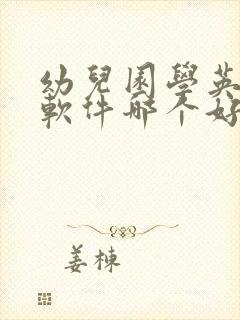 幼兒園學英
軟件哪个好
姜棟